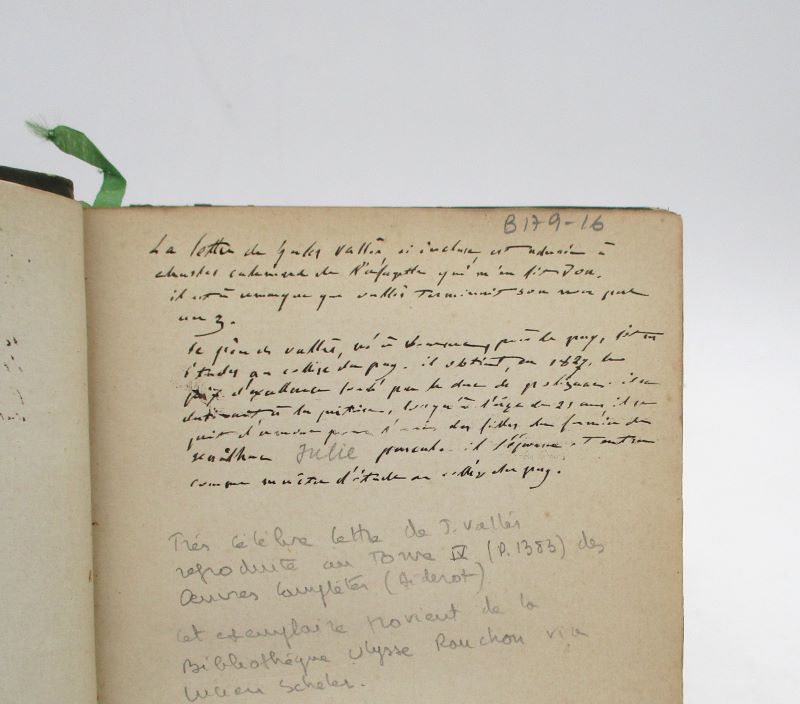 B179-16
La lettre de Jules Vallès, ci incluse, est adressée à
Charles Calemard de Lafayette qui m'en fit don.
il est à remarquer que vallès terminait son nom par
un z.
Le père de vallès, né à près le puy, fit ses
études au collège du puy. il obtint, en 1827, le
prix d'excellence fondé par le duc de polignac. il se
destinait à la prêtrise, lorsqu'à l'âge de 21 ans il se
prit d'amour pour des filles du fermier de
Julie pascal. il l'épousa. entra
comme maître d'étude au collège du puy.
Très célèbre lettre de J. Vallès
reproduite au Tome IV (p. 1383) des
Œuvres Complètes (Diderot)
Cet exemplaire provient de la
Bibliothèque Ulysse Rouchon via
Lucien Scheler.